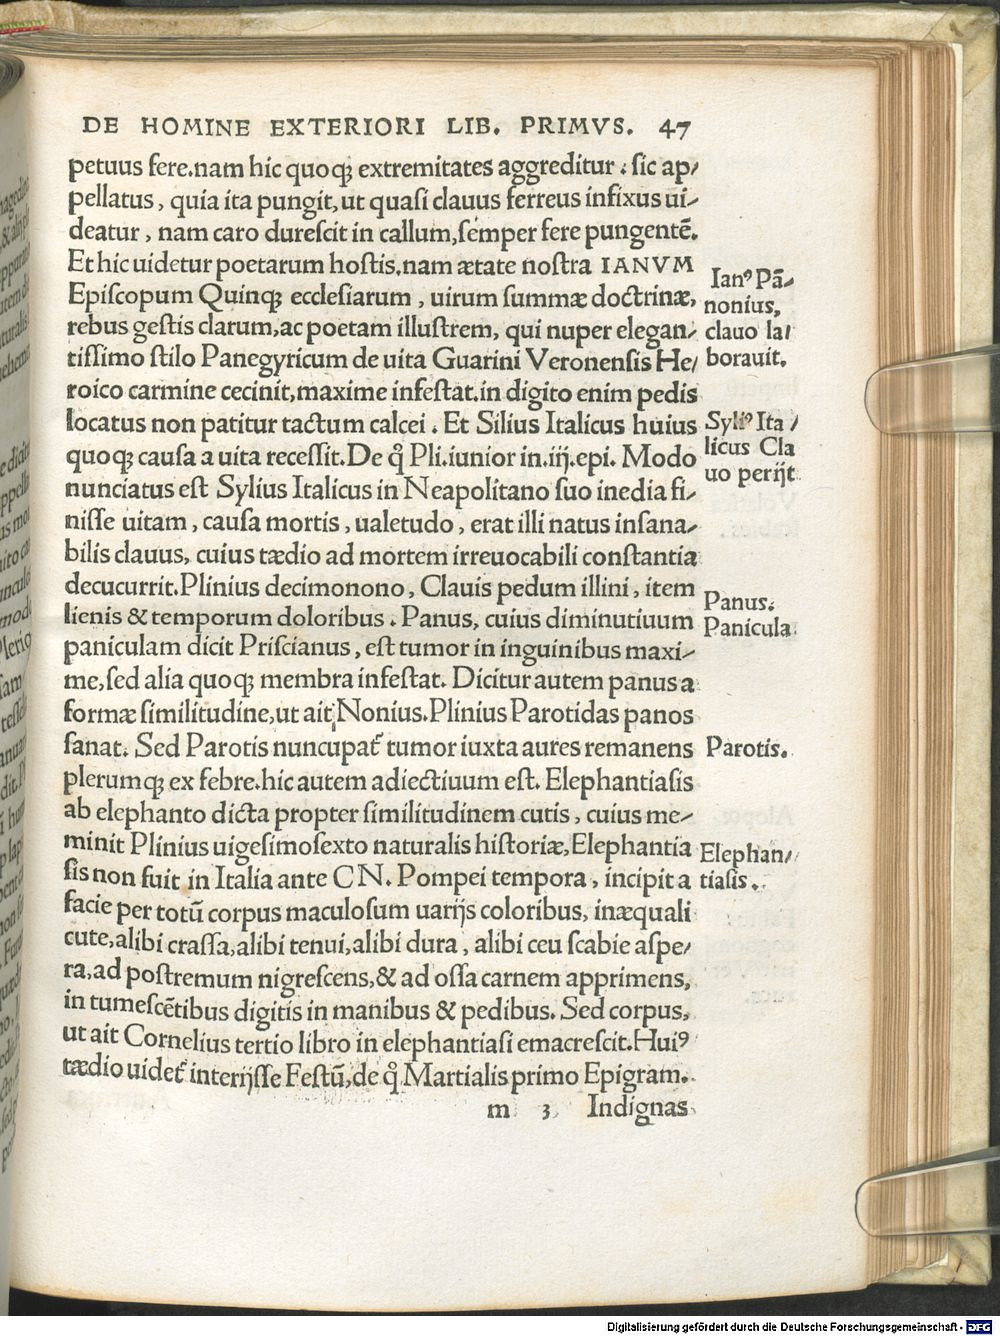 DE HOMINE EXTERIORI LIB. PRIMVS. 47
petuus fere.nam hic quoqꝫ extremitates aggreditur : ſic ap/
pellatus , quia ita pungit,ut quaſi clauus ferreus infixus ui/
deatur , nam caro dureſcit in callum,ſemper fere pungentē.
Et hic uidetur poetarum hoſtis.nam ætate noſtra IANVM
Epiſcopum Quinqꝫ eccleſiarum , uirum ſummæ doctrinæ,
rebus geſtis clarum,ac poetam illuſtrem, qui nuper elegan/
tiſſimo ſtilo Panegyricum de uita Guarini Veronenſis He/
roico carmine cecinit,maxime infeſtat.in digito enim pedis
locatus non patitur tactum calcei . Et Silius Italicus huius
quoqꝫ cauſa a uita receſſit.De q̊ Pli.iunior in.iij.epi. Modo
nunciatus eſt Sylius Italicus in Neapolitano ſuo inedia fi/
niſſe uitam , cauſa mortis , ualetudo , erat illi natus inſana/
bilis clauus, cuius tædio ad mortem irreuocabili conſtantia
decucurrit.Plinius decimonono, Clauis pedum illini , item
lienis & temporum doloribus . Panus, cuius diminutiuum
paniculam dicit Priſcianus , eſt tumor in inguinibus maxi/
me,ſed alia quoqꝫ membra infeſtat. Dicitur autem panus a
formæ ſimilitudine,ut ait Nonius.Plinius Parotidas panos
ſanat. Sed Parotis nuncupat᷑ tumor iuxta aures remanens
plerumqꝫ ex febre.hic autem adiectiuum eſt. Elephantiaſis
ab elephanto dicta propter ſimilitudinem cutis , cuius me/
minit Plinius uigeſimoſexto naturalis hiſtoriæ,Elephantia
ſis non fuit in Italia ante CN. Pompei tempora , incipit a
facie per totū corpus maculoſum uarijs coloribus, inæquali
cute,alibi craſſa,alibi tenui,alibi dura , alibi ceu ſcabie aſpe/
ra,ad poſtremum nigreſcens,& ad oſſa carnem apprimens,
in tumeſcētibus digitis in manibus & pedibus. Sed corpus,
ut ait Cornelius tertio libro in elephantiaſi emacreſcit.Huiꝰ
tædio uidet᷑ interijſſe Feſtū,de q̊ Martialis primo Epigram.
m 3 Indignas
Ianꝰ Pā/
nonius,
clauo la/
borauit.
Sylіꝰ Ita /
licus Cla
uo perijt
Panus.
Panicula.
Parotis.
Elephan/
tiaſis .
Digitalisierung gefördert durch die Deutsche Forschungsgemeinschaft - DFG